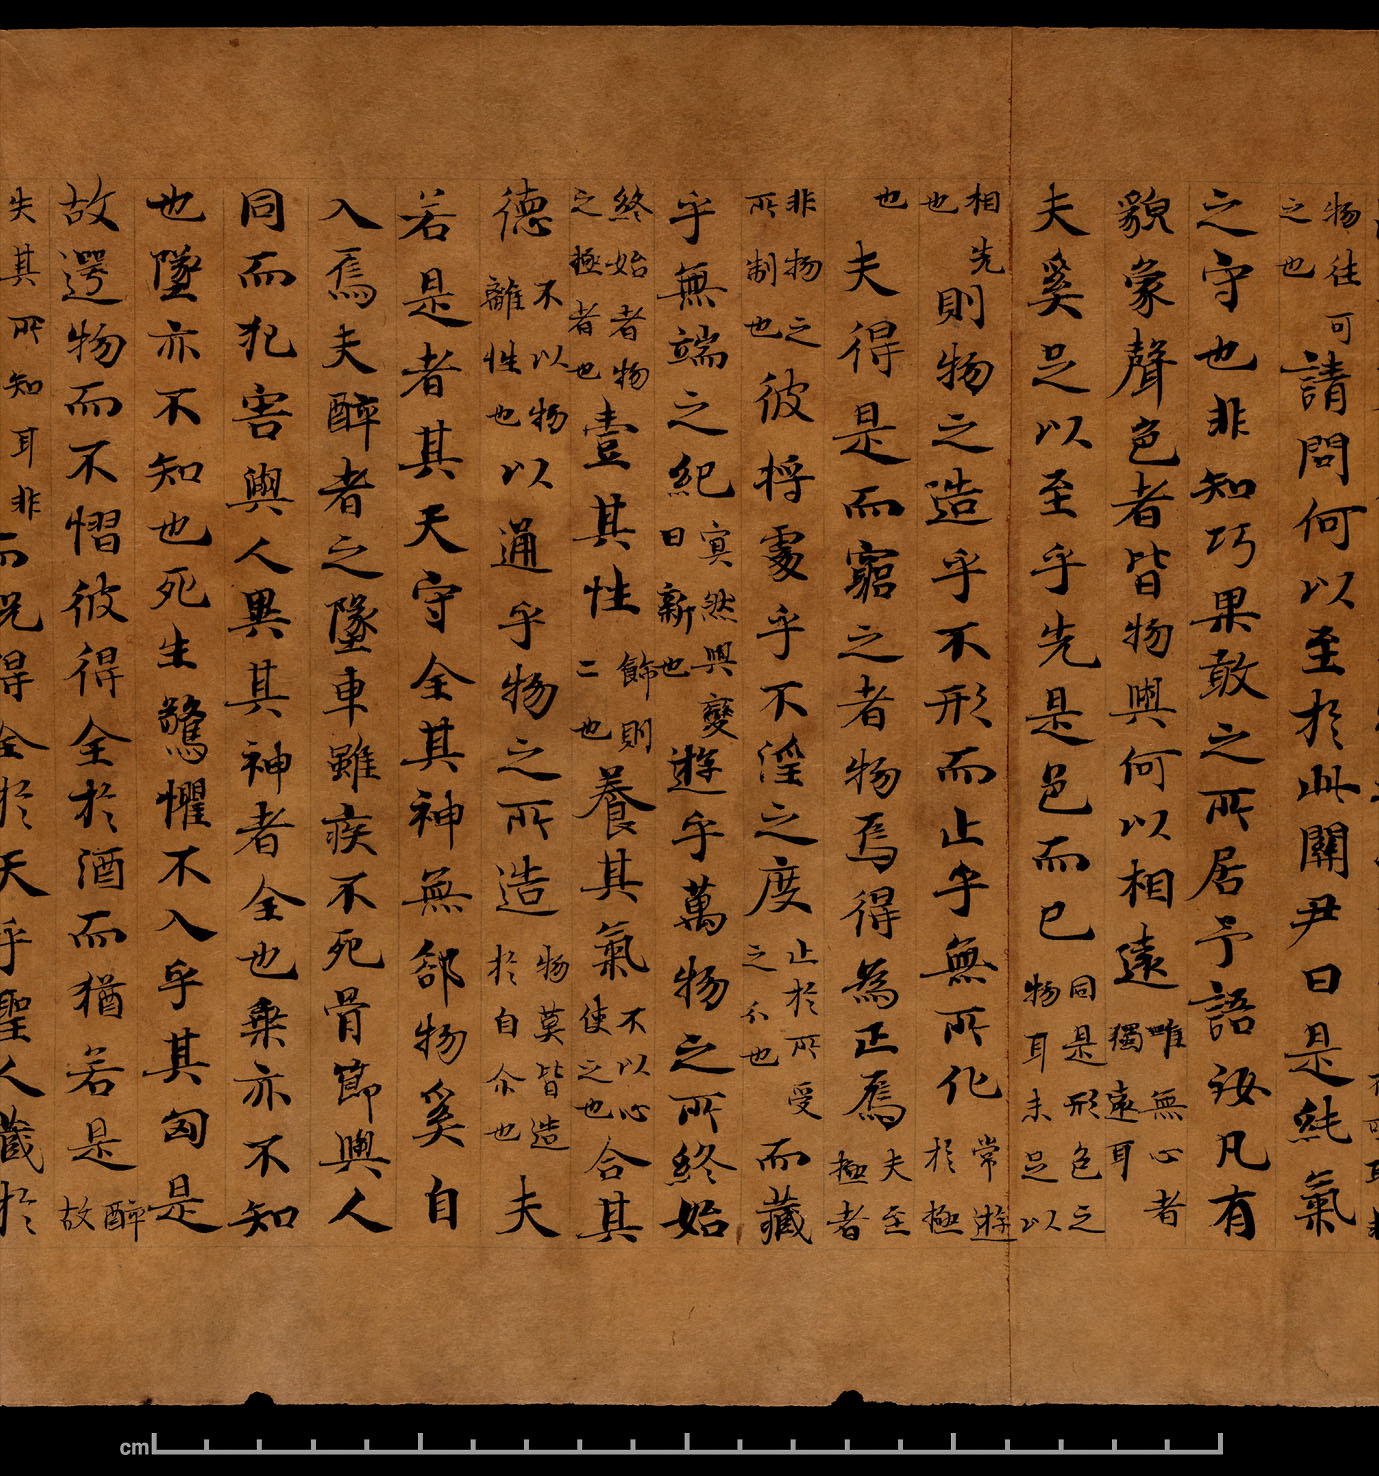 物往可之也請問何以至於此關尹曰是純氣
之守也非知巧果敢之所居予語汝凡有
貌象聲色者皆物與何以相遠唯無心者獨遠耳
夫奚足以至乎先是色而已同是形色之物耳未足以
相先也則物之造乎不形而止乎無所化常遊於極
也夫得是而窮之者物焉得為正焉夫至極者
非物之所制也彼將處乎不淫之度止於所受之尒也而藏
乎無端之紀冥然與變日新也遊乎萬物之所終始
終始者物之極者也壹其性飾則二也養其氣不以心使之也合其
德不以物離性也以通乎物之所造物莫皆造於自尒也夫
若是者其天守全其神無郤物奚自
入焉夫醉者之墜車雖疾不死骨節與人
同而犯害與人異其神者全也乗亦不知
也墜亦不知也死生驚懼不入乎其匈是
故遻物而不慴彼得全於酒而猶若是醉故
失其所知耳非而況得全於天乎聖人藏於